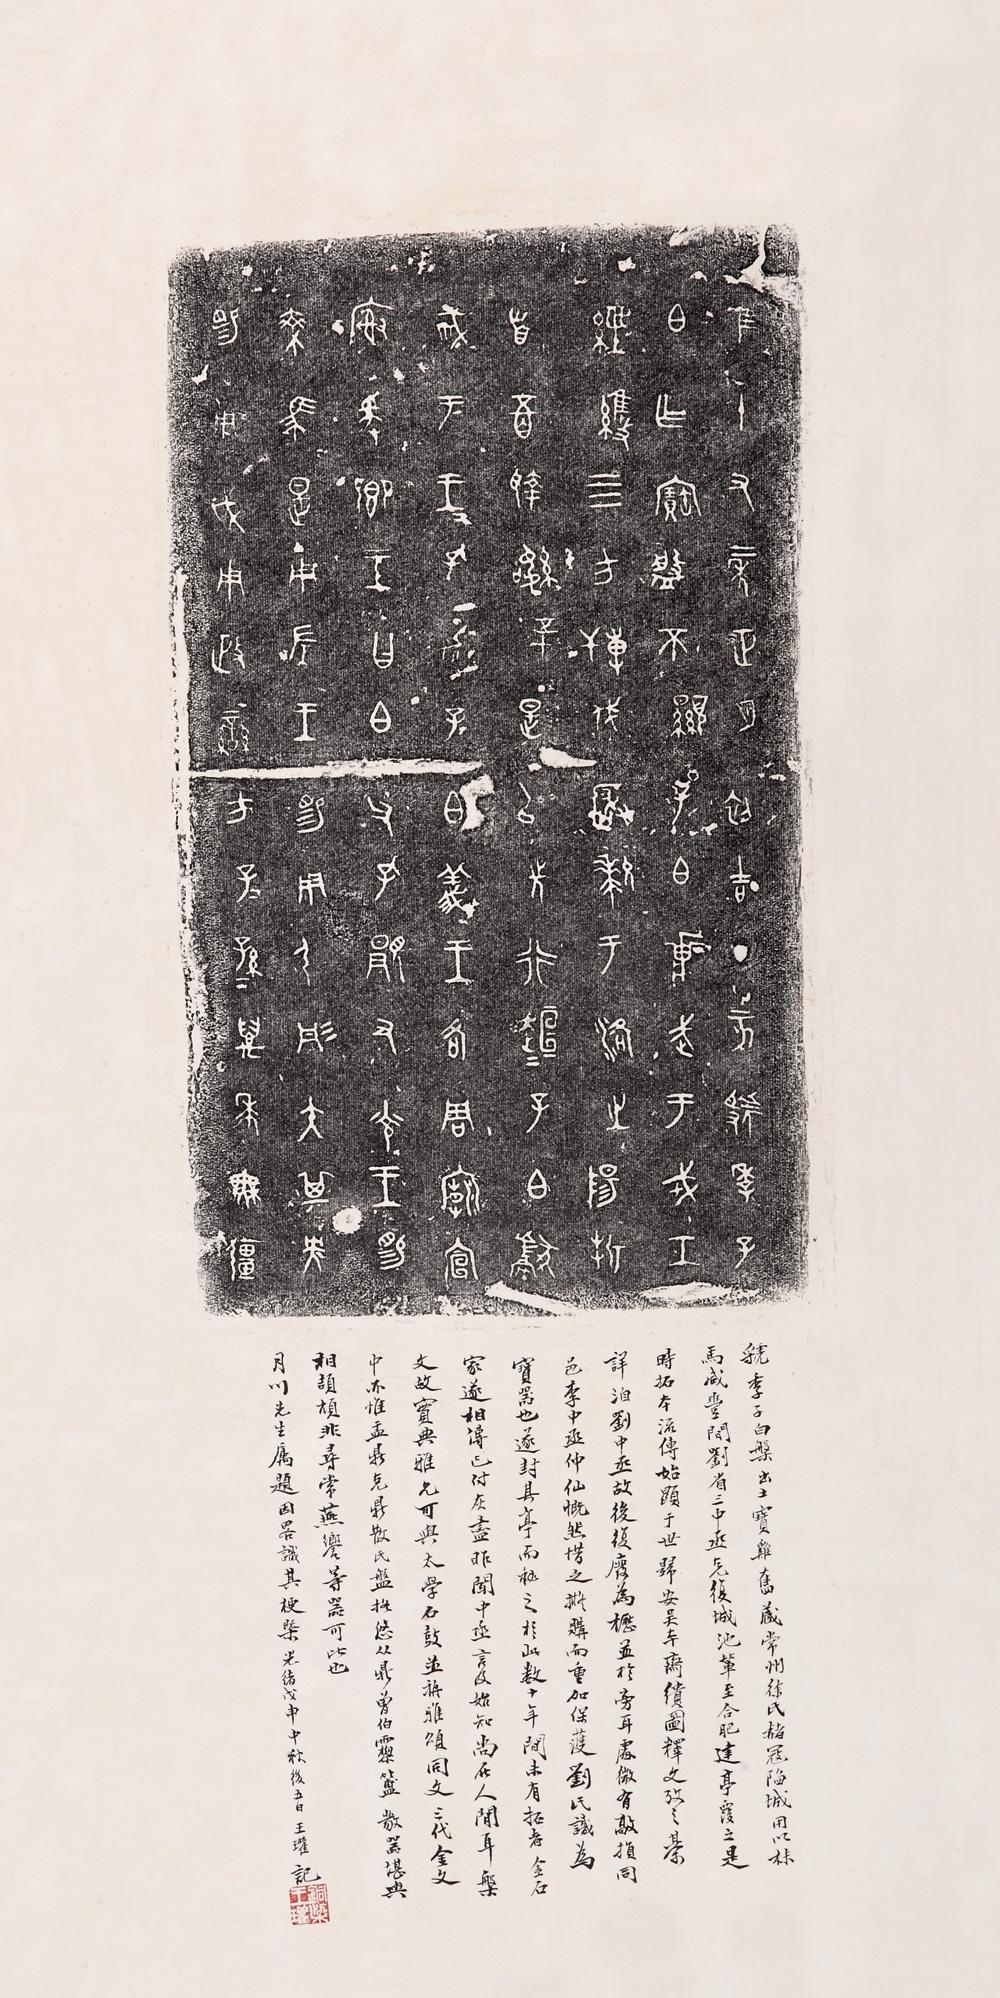 隹十又二年正月初吉丁亥虢季子
白乍寶盤不顯子白庸武于戎工
經維四方搏伐玁狁于洛之陽折
首五百執訊五十是以先行桓二子白獻
馘于王王孔加子白義王各周廟宣
廚爰卿王曰白父孔顯又光王賜
乘馬是用左王賜用弓彤矢其央
賜用戉用政蠻方子二孫二萬年無疆
虢季子白槃出土寶雞舊藏常州徐氏赭寇陷城用以秣
馬咸豐間劉省三中丞克復城池輦至合肥建亭覆之是
時拓本流傳始顯于世歸安吳平齋繢圖釋文攷之綦
詳洎劉中丞故後復廢為櫪並於旁耳處微有敲損同
邑李中丞仲仙慨然惜之擬購而重加保護劉氏識為
寶器也遂封其亭而秘之於此數十年間未有拓者金石
家遂相傳已付灰盡昨聞中丞言及始知尚在人間耳槃
文故寶典雅允可與太學石鼓並稱雅頌同文三代金文
中亦惟盂鼎克鼎散氏盤攸從鼎曾伯霥簠數器堪與
相頡頏非尋常燕饗等器可比也
月川先生屬題因畧識其梗槩光緒戊申中秋後五日王瓘記
銅梁王瓘